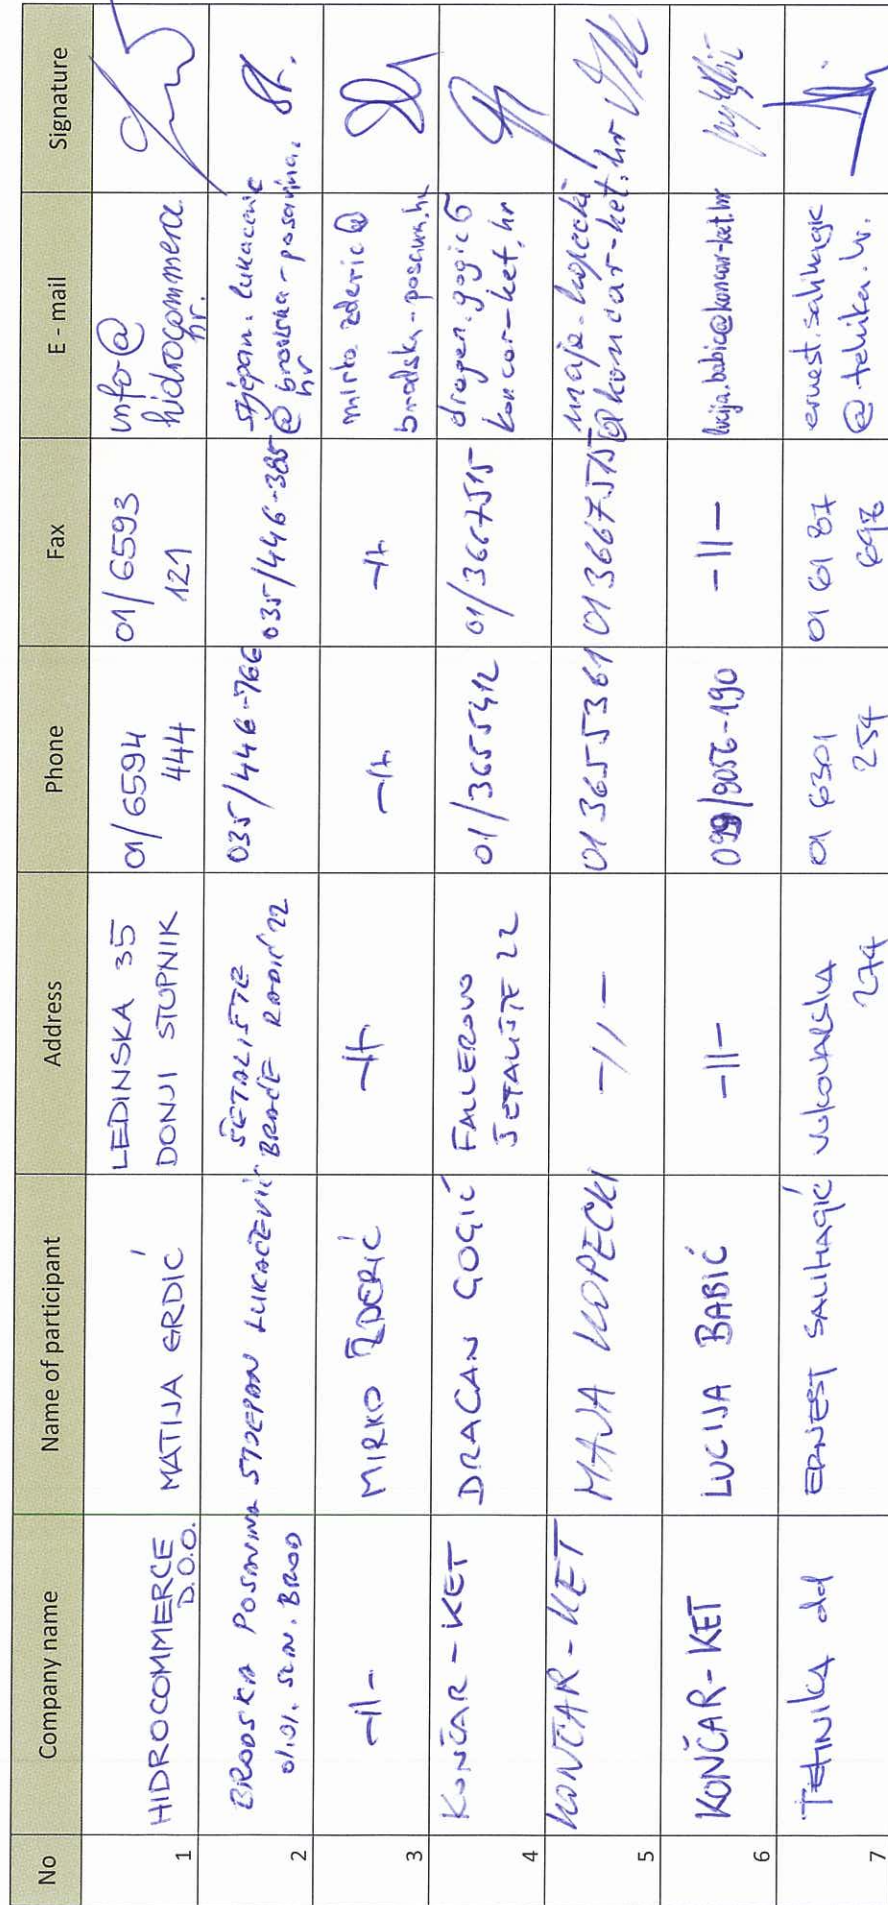 No Company name Name of participant Address Phone Fax E - mail Signature
1 HIDROCOMMERCE D.O.O. MATIJA GRDIĆ LEDINSKA 35 DONJI STUPNIK 01/6594 444 01/6593 121 info@ hidrocommerce. hr.
2 BRODSKA POSAVINA SLAV. BROD STJEPAN LUKAČEVIĆ ŠETALIŠTE BRAĆE RADIĆ 22 035/446-766 035/446-385 stjepan.lukacevic @brodska-posavina. hr
3 -||- MIRKO ŽDERIĆ -||- -||- -||- mirko.zderic@ brodska-posavina.hr
4 KONČAR-KET DRAGAN GOGIĆ FALLEROVO ŠETALIŠTE 22 01/3655412 01/3667515 dragan.gogic@ koncar-ket.hr
5 KONČAR-KET MAJA KOPECKI -||- 01 3655361 01 3667515 maja.kopecki @koncar-ket.hr
6 KONČAR-KET LUCIJA BABIĆ -||- 099/9056-190 -||- lucija.babic@koncar-ket.hr
7 TEHNIKA dd ERNEST SALIHAGIĆ VUKOVARSKA 274 01 6301 254 01 61 87 698 ernest.salihagic @tehnika.hr.